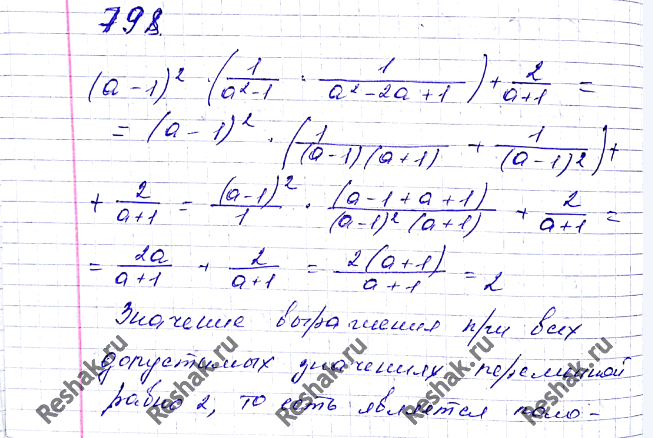 798.
(a-1)² · (1/(a²-1) · 1/(a²-2a+1)) + 2/(a+1) =
= (a-1)² · (1/((a-1)(a+1)) + 1/(a-1)²) +
+ 2/(a+1) = (a-1)²/1 · (a-1+a+1)/((a-1)²(a+1)) + 2/(a+1) =
= 2a/(a+1) + 2/(a+1) = 2(a+1)/(a+1) = 2
Значение выражения при всех
допустимых значениях переменной
равно 2, то есть является поло-
Reshak.ru
Reshak.ru
Reshak.ru
Reshak.ru